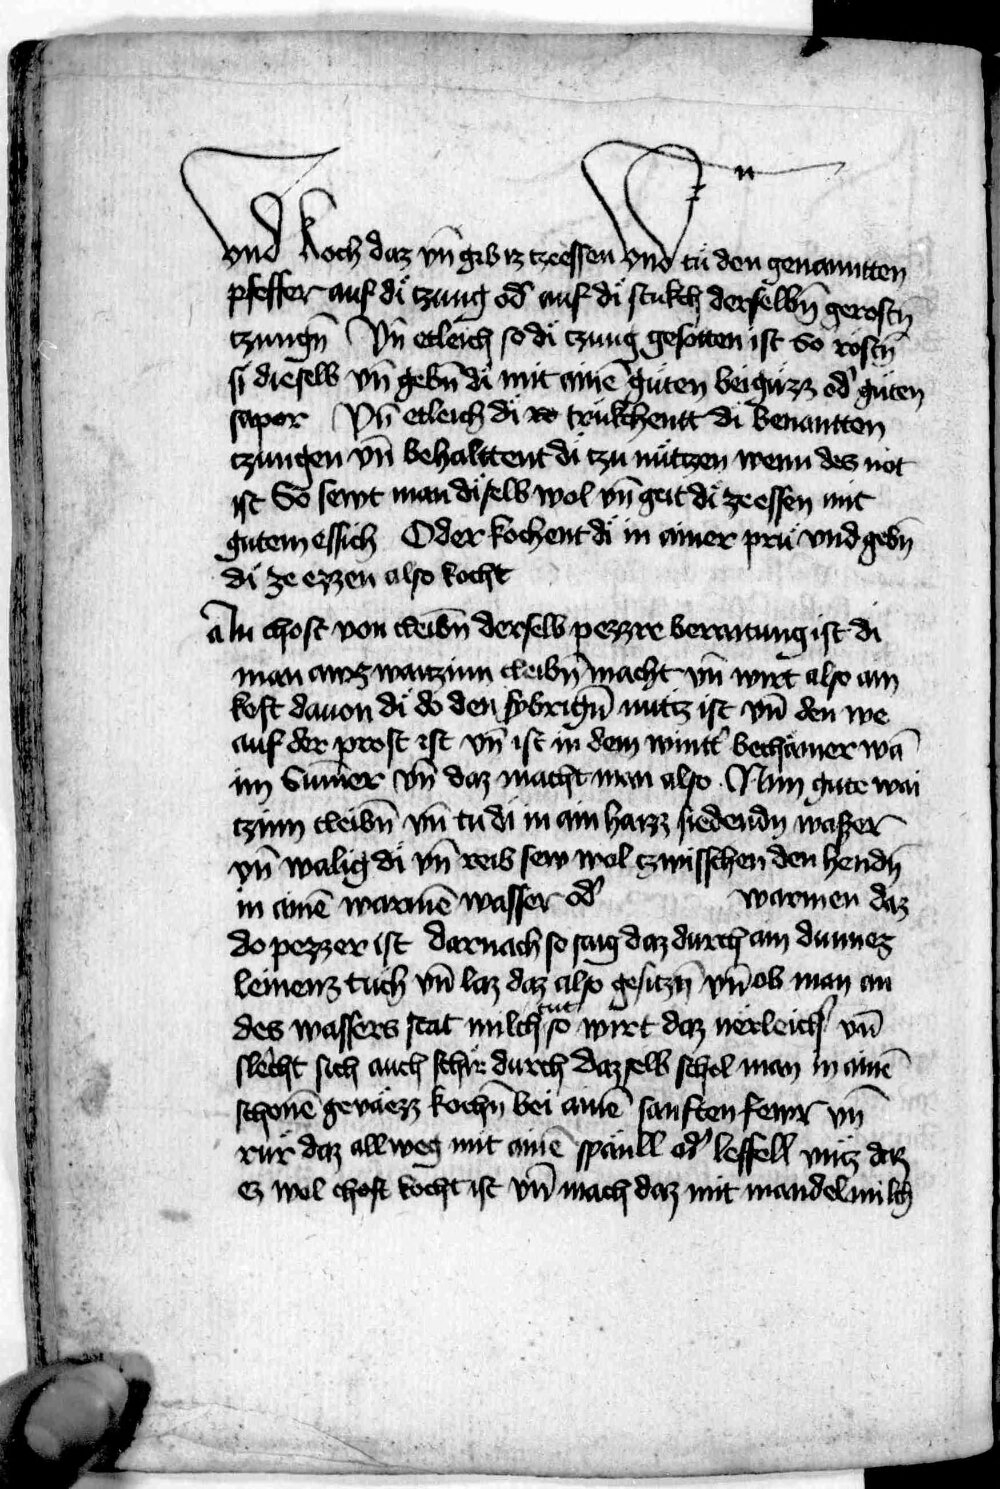 vnd koch daz vn̄ gib iz tzeessen vnd tuͤ den genanntten
pfeffer auf di tzung od' auf di stukch derselbn̄ gerostn̄
tzungn̄ Vn̄ etleich so di tzung gesotten ist So rostn̄
si dieselb vn̄ gebn̄ di mit ainē guten beiguzz od' guten
sapor Vn̄ etleich di trukchentt di benantten
tzungen vn̄ behalttent di tzu nutzen wenn des not
ist So sewt man diselb wol vn̄ geit di ze essen mit
gutem essich Oder kochent di in ainer pruͤ vnd gebn̄
di ze ezzen also kocht
Ain chost von cleibn̄ derselb pezzre beraitung ist di
man awz waitzinn cleibn̄ macht vn̄ wirt also ain
kost dauon di do den sybrign̄ nutz ist vn̄ den we
auf der prost ist vn̄ ist in dem wintt' bechamer wā
im Sum̄er vn̄ daz macht man also Nim gute wai
tzinn cleibn̄ vn̄ tu di in ain haizz siedendn wazzer
vn̄ walig di vn̄ reib sew wol tzwisschen den hendn̄
in ainē warmē wasser od' warmen daz
do pezzer ist darnach so saig daz durch ain dunnez
leinenz tuch vn̄ laz daz also gesitzn̄ vn̄ ob man an
des wassers stat milch tut so wirt daz nerleich' vn̄
slecht sich auch schir durch daz selb schol man in ainē
schonē geuaezz kochn̄ bei ainē sanften fewr vn̄
rur daz allweg mit ainē spanll od' leffell vntz daz
ez wol chost kocht ist vn̄ mach daz mit mandelmilch